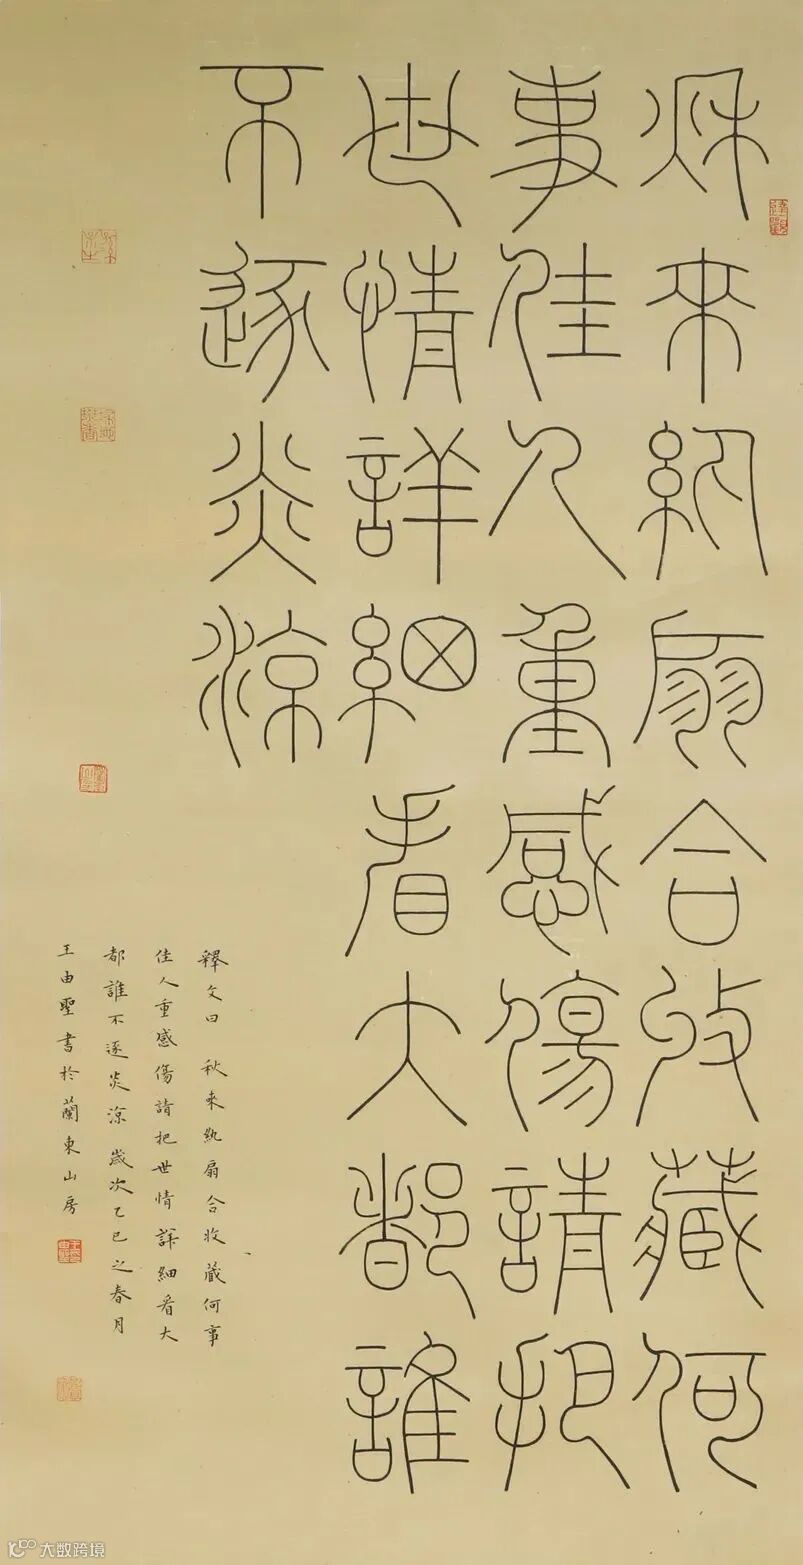 秋來紈扇合收藏何
事佳人重感傷請把
世情詳細看大都誰
不逐炎涼
釋文曰 秋來紈扇合收藏何事
佳人重感傷請把世情詳細看大
都誰不逐炎涼歲次乙巳之春月
王由聖書於蘭東山房
達觀
大数跨境